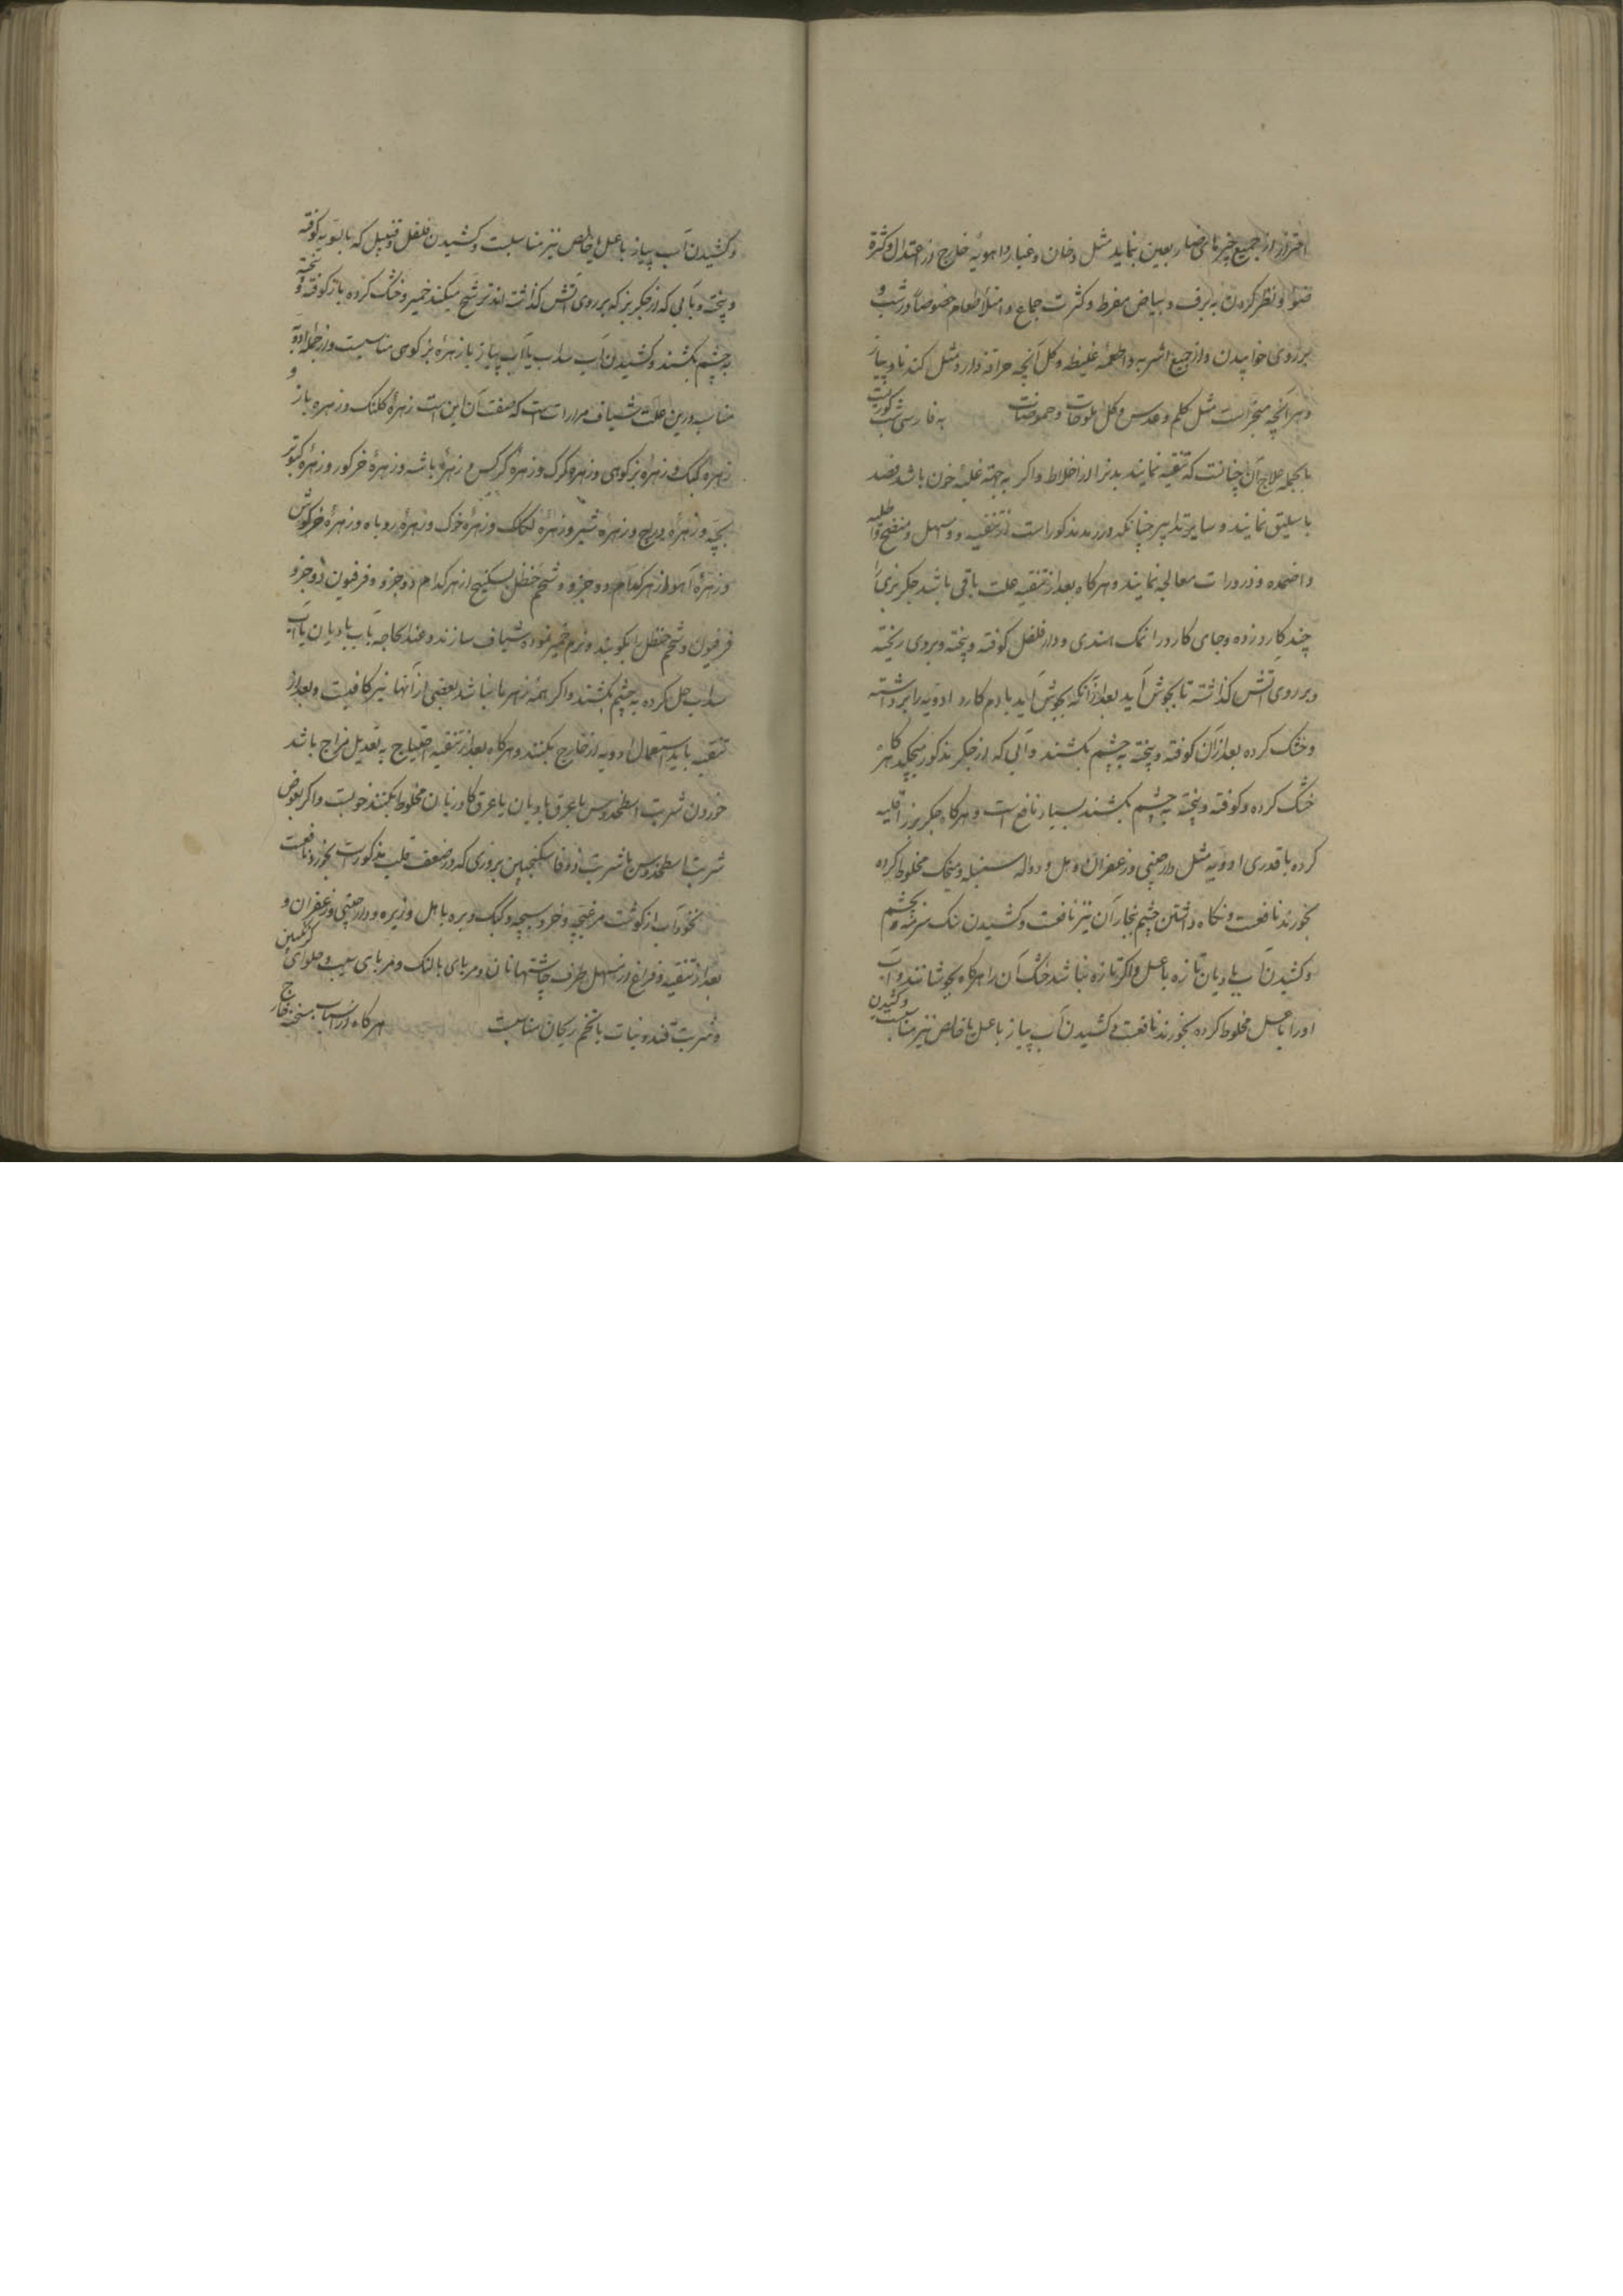 احتراز از جمیع چیزهای ضار بعین نماید مثل دخان و غبار و اهویه خارج از اعتدال و کثرة
ضوا و نظر کردن به برف و بیاض مفرط و کثرت جماع و امتلأ طعام خصوصاً در شب و
بر روی خوابیدن و از جمیع اشربه و اطعمه غلیظه و کل آنچه حرافة دارد مثل کندنا و پیاز
و هر آنچه مبخر است مثل کلم و عدس و کل ملوحات و حموضات به فارسی شب کوریست
بالجمله علاج آن چنانست که تنقیه نمایند بدنرا از اخلاط و اکر به جهة غلبه خون باشد فصد
باسلیق نمایند و سایر تدابیر چنانکه در رمد مذکور است از تنقیه و مسهل و منضج و اطلیه
و اضمده و ذرورات معالجه نمایند و هرکاه بعد از تنقیه علت باقی باشد جکر بزی را
چند کارد زده و جای کارد را نمک هندی و دار فلفل کوفته و پخته و بروی ریخته
و بر روی آتش کذاشته تا بجوش آید بعد از آنکه بجوش آید با دم کارد ادویه را برداشته
و خشک کرده بعد از آن کوفته و پخته به چشم بکشند و آبی که از جکر مذکور میچکد کاهی
خشک کرده و کوفته و پخته به چشم بکشند بسیار نافع است و هرکاه جکر بز را قلیه
کرده با قدری ادویه مثل دارچینی و زعفران و هل و دواله سنبله و میخک مخلوط کرده
بخورند نافعست و نکاه داشتن چشم ببخار آن نیز نافعست و کشیدن سنک سرمه بچشم
و کشیدن آب بادیان تازه با عسل و اکر تازه نباشد خشک آن را هرکاه بجوشانند و آب
او را با عسل مخلوط کرده بخورند نافعست و کشیدن آب پیاز با عسل یا خالص نیز مناسبست و کشیدن
و کشیدن آب پیاز با عسل یا خالص نیز مناسبست و کشیدن فلفل و قنبیل که بالسویه کوفته
و پخته و بآبی که از جکر بز که بر روی آتش کذاشته اند ترشح میکند خمیر و خشک کرده باز کوفته و پخته
به چشم بکشند و کشیدن آب سداب یا آب پیاز یا زهرهٔ بز کوهی مناسبست و از جمله ادویهٔ
مناسبه درین علت شیاف مرارات است که صفت آن این است زهرهٔ کلنک و زهره باز و
زهره کبک و زهرهٔ بز کوهی و زهره کرک و زهرهٔ کرکس و زهرهٔ باشه و زهرهٔ خر کور و زهرهٔ کبوتر
بچه و زهرهٔ دراج و زهرهٔ شیر و زهرهٔ لکلک و زهرهٔ خوک و زهرهٔ روباه و زهرهٔ خرکوش
و زهرهٔ آهو از هر کدام دو جزو و شحم حنظل سکبینج از هر کدام دو جزو و فرفیون دو جزو
فرفیون و شحم حنظل را بکوبند و نرم خمیر نموده شیاف سازند و عند الحاجه بآب بادیان یا آب
سداب حل کرده به چشم بکشند و اکر همهٔ زهرها نباشد بعضی از آنها نیز کافیست و بعد از
تنقیه باید استعمال ادویه از خارج بکنند و هرکاه بعد از تنقیه احتیاج به تعدیل مزاج باشد
خوردن شربت اسطخدوس با عرق بادیان یا عرق کاوزبان مخلوط بکنند خوبست و اکر بعوض
شربت اسطخدوس یا شربت زوفا سکنجبین بزوری که در ضعف قلب مذکور است بخورد نافعست
نخودآب از کوشت مرغ بچه و خروس بچه و کبک و بره با هل و زیره و دارچینی و زعفران و
بعد از تنقیه و فراغ از مسهل طرف چاشتها نان و مربای بالنک و مربای سیب و حلوای کزنکبین
و شربت قند و نبات با تخم ریحان مناسبست هرکاه از اسباب سخنه خارج